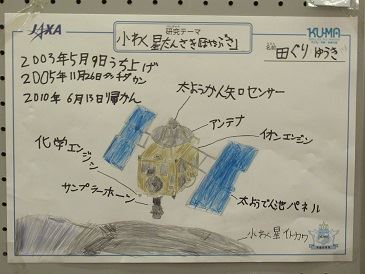 JAXA
KU-MA
研究テーマ
小わく星たんさきはやぶさ」
名前 田ぐり ゆうき
2003年5月9日うち上げ
2005年11月26日タッチダウン
2010年6月13日帰かん
太ようかん知センサー
アンテナ
イオンエンジン
化学エンジン
サンプラーホーン
太ようでん池パネル
小わく星イトカワ